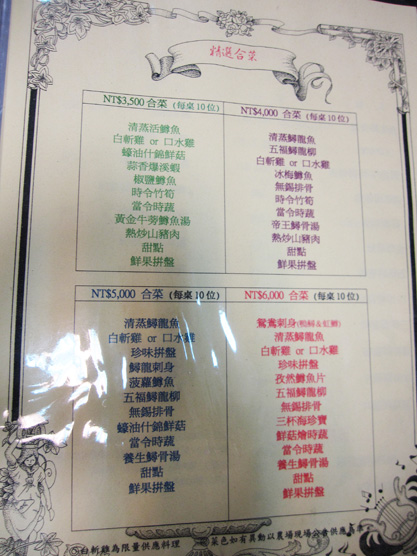 精選合菜
NT$3,500 合菜 (每桌10位)
清蒸活鱒魚
白斬雞 or 口水雞
蠔油什錦鮮菇
蒜香爆溪蝦
椒鹽鱒魚
時令竹筍
當令時蔬
黃金牛蒡鱒魚湯
熱炒山豬肉
甜點
鮮果拼盤
NT$4,000 合菜 (每桌10位)
清蒸鱘龍魚
五福鱘龍柳
白斬雞 or 口水雞
冰梅鱒魚
無錫排骨
時令竹筍
當令時蔬
帝王鱘骨湯
熱炒山豬肉
甜點
鮮果拼盤
NT$5,000 合菜 (每桌10位)
清蒸鱘龍魚
白斬雞 or 口水雞
珍味拼盤
鱘龍刺身
菠蘿鱒魚
五福鱘龍柳
無錫排骨
蠔油什錦鮮菇
當令時蔬
養生鱘骨湯
甜點
鮮果拼盤
NT$6,000 合菜 (每桌10位)
鴛鴦刺身
清蒸鱘龍魚
白斬雞 or 口水雞
珍味拼盤
孜然鱒魚片
五福鱘龍柳
無錫排骨
三杯海珍寶
鮮菇燴時蔬
當令時蔬
養生鱘骨湯
甜點
鮮果拼盤
白斬雞為限量供應料理
菜色如有異動以農場現場公告供應為準